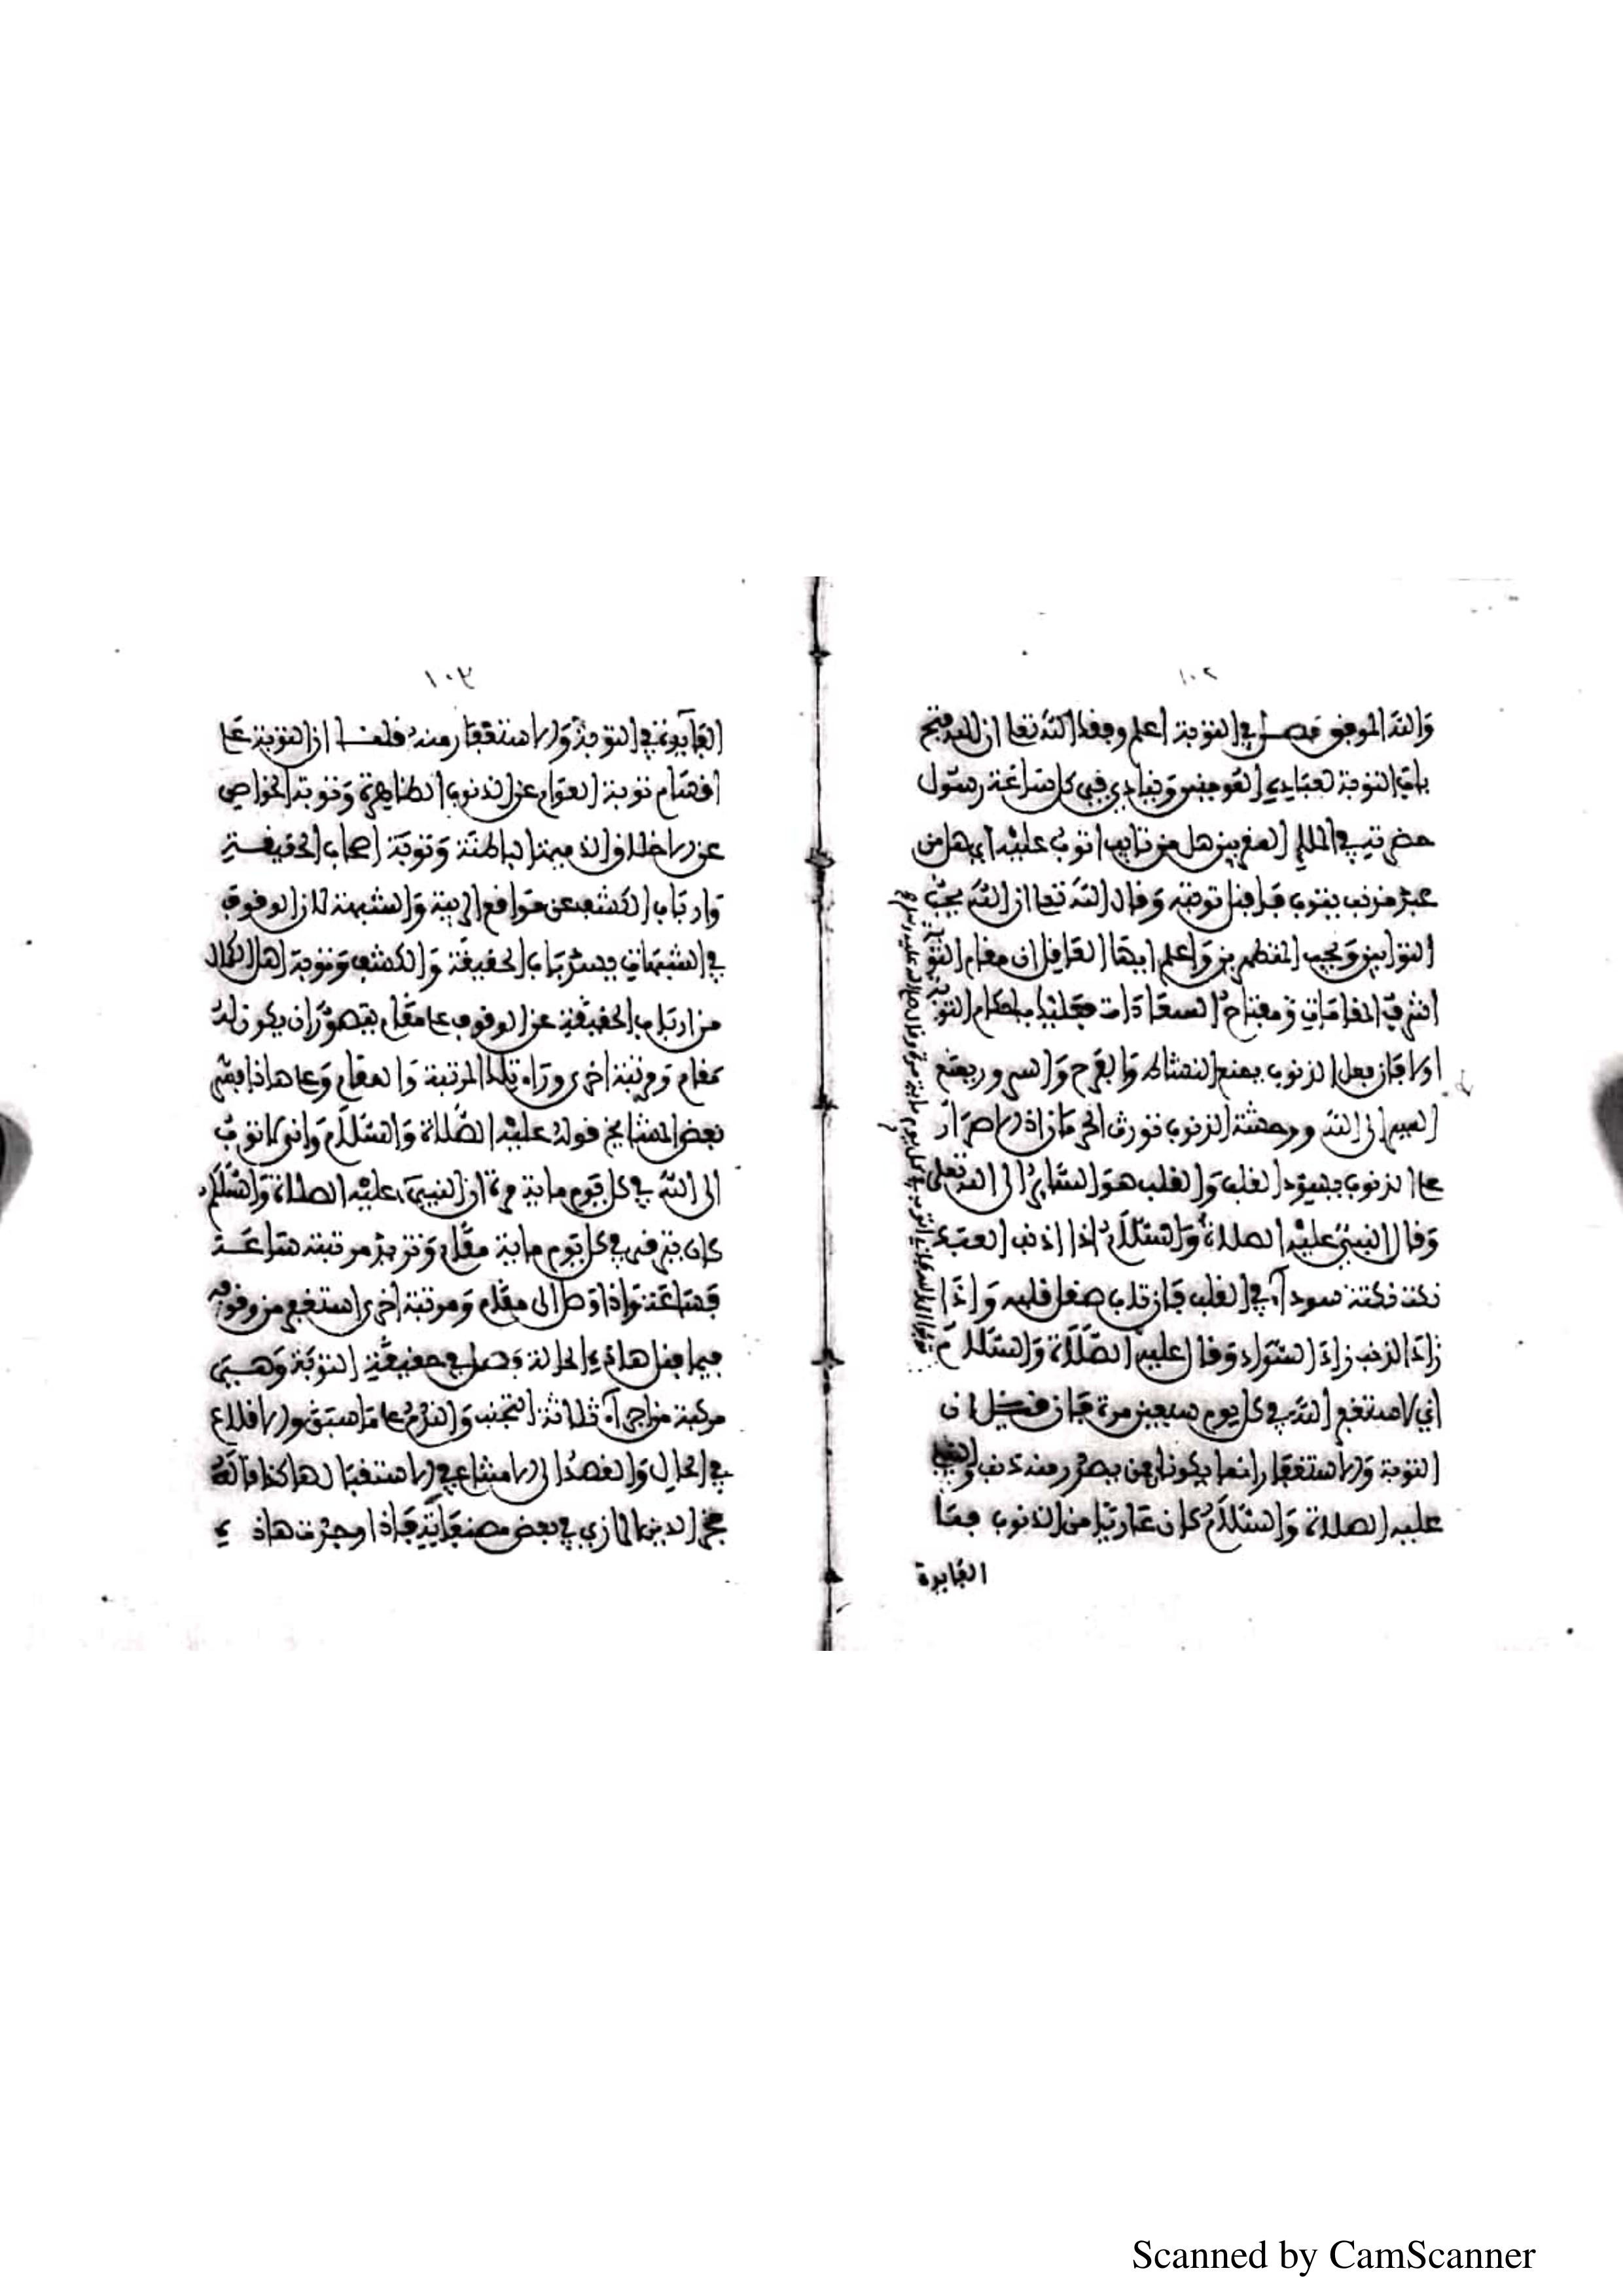 ١٠٢
وَاللهُ الموفق فصل في التوبة اعلم وفقك الله تعالى ان الله فتح
باب التوبة لعباده المؤمنين وينادي في كل ساعة رسول
من تايب اتوب عليه اي هل من
عبد مذنب يتوب قبلنا توبته وَقال الله تعالى ان الله يحبّ
التوابين وَيحب المتطهرين وَاعلم ايها العاقل ان مقام التوبة
اشرف المقامات وَمفتاح السعادات فعليك باحكام التوبة
اولا فان فعل الذنوب يمنع النشاط وَالفرح وَالسير ويمنع
السير الى الله ووحشة الذنوب تورث الحرمان اذ الاصرار
على الذنوب يسود القلب وَالقلب هو الساير الى الله تعلى
وَقال النبي عليه الصلاة وَالسلام اذا اذنب العبد
نكت نكتة سودآء في القلب فان تاب صقل قلبه وَاذا
زادَ الذنب زادَ السّوَاد وَقال عليه الصّلاة وَالسلام
اني لاستغفر الله في كل يوم سبعين مرة فان قيل ان
التوبة وَالاستغفار انما يكونا ممن يصدر منه ذنب وَالنبي
عليه الصلاة وَالسّلام كان عاريا من الذنوب فما
الفايدة
توبوا الى الله فاني اتوب في كل يوم ماية مرة وقال صلى الله عليه وسلم
١٠٣
الفآيدة في التوبة وَالاستغفار منه قلنا ان التوبة على
اقسام توبة العوام عن الذنوب الظاهرة وَتوبة الخواص
عن الاخلاق الذميمة الباطنة وَتوبة اصحاب الحقيقة
وَارباب الكشف عن مواقع الريبة وَالشبهة لان الوقوف
في الشبهات يسد باب الحقيقة وَالكشف وَتوبة اهل الكمال
من ارباب الحقيقة عن الوقوف على مقام يتصور ان يكون له
مقام وَمرتبة اخرى ورآء تلك المرتبة وَالمقام وَعلى هاذا فسّر
بعض المشايخ قوله عليه الصّلاة وَالسّلام وَاني لاتوبُ
الى الله في كل يوم ماية مرة ان النبي عليه الصلاة وَالسّلام
كان يترقى في كل يوم ماية مقام وَتزيد مرتبته ساعة
فساعة وَاذا وَصل الى مقام وَمرتبة اخرى استغفر من وقوفه
فيما قبل هاذه الحالة فصل في حقيقة التوبة وَهي
مركبة من اجزآء ثلاثة التجنب وَالندم على ما سبق وَالاقلاع
في الحال وَالقصد الى الامتناع في الاستقبال هاكذا قاله
فخر الدين الرازي في بعض مصنفاته فاذا وجدت هاذه